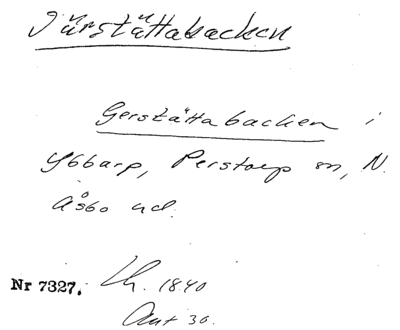 Järstättabacken
Gerstättabacken i
Ybbarp, Perstorp sn, N.
Åsbo hd.
Nr 7327. Lh. 1840
Ant 30.